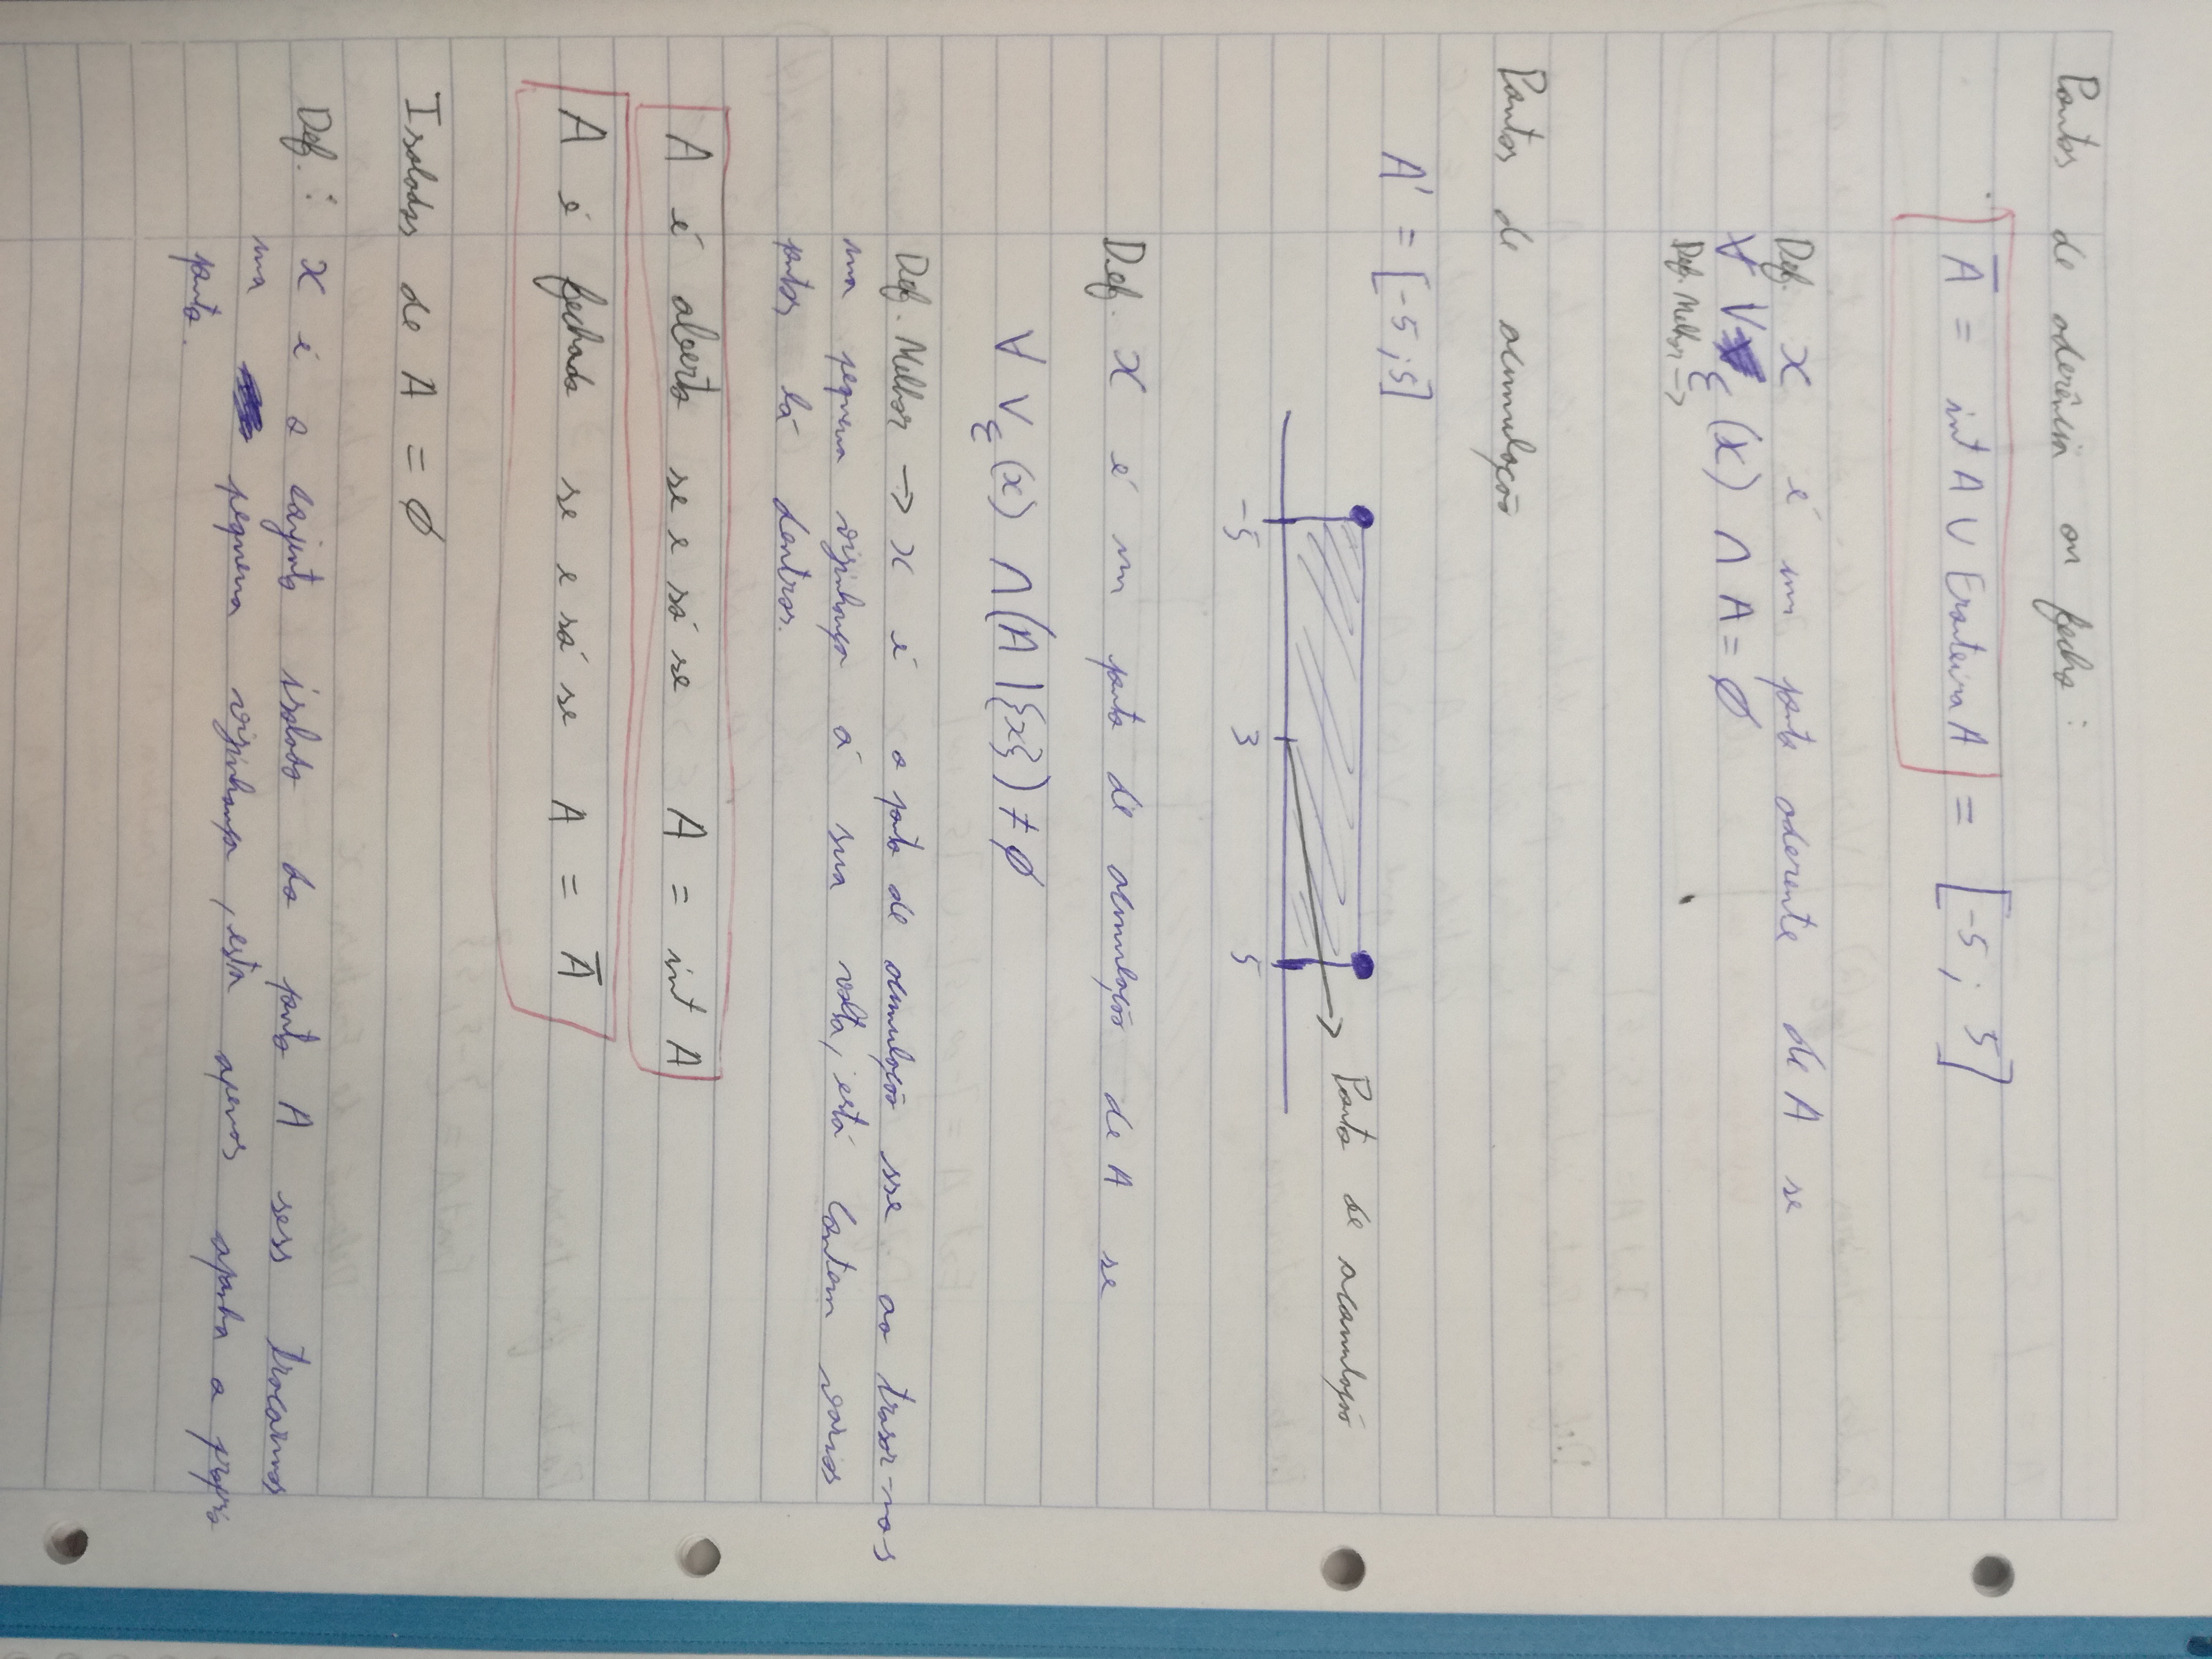 Pontos de aderência ou fecho:
A̅ = int A ∪ Fronteira A = [-5; 5]
Def. x é um ponto aderente de A se
∀ Vε(x) ∩ A = ∅
Def. Melhor →
Pontos de acumulação
A' = [-5; 5]
Ponto de acumulação
-5 3 5
Def. x é um ponto de acumulação de A se
∀ Vε(x) ∩ (A \{x}) ≠ ∅
Def. Melhor → x é o ponto de acumulação sse ao trasar-mos
uma pequena vizinhança á sua volta, está contem varios
pontos lá dentros.
A é aberto se e só se A = int A
A é fechado se e só se A = A̅
Isolados de A = ∅
Def.: x é o conjunto isolado do ponto A sess trocarmos
uma pequena vizinhança, esta apenas apanha o próprio
ponto.